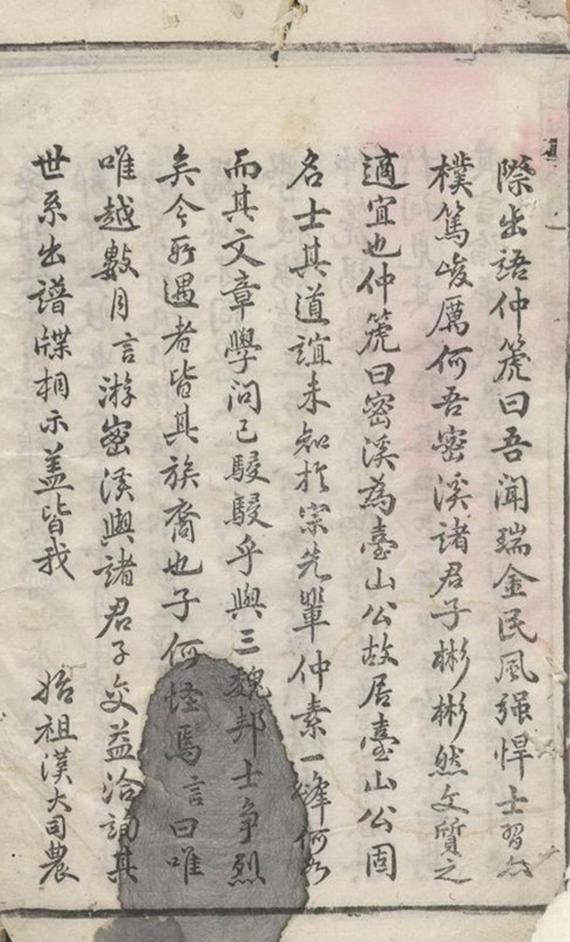 際出語仲篪曰吾聞瑞金民風强悍士習
樸篤峻厲何吾密溪諸君子彬彬然文質之
適宜也仲篪曰密溪為臺山公故居臺山公固
名士其道誼未知於宗先輩仲素一峰何如
而其文章學问已駸駸乎與三魏邦士争烈
矣今所遇者皆其族裔也子何怪焉言曰唯
唯越數月言游密溪與諸君子交益洽詢其
世系出譜牒相示盖皆我 始祖漢大司農